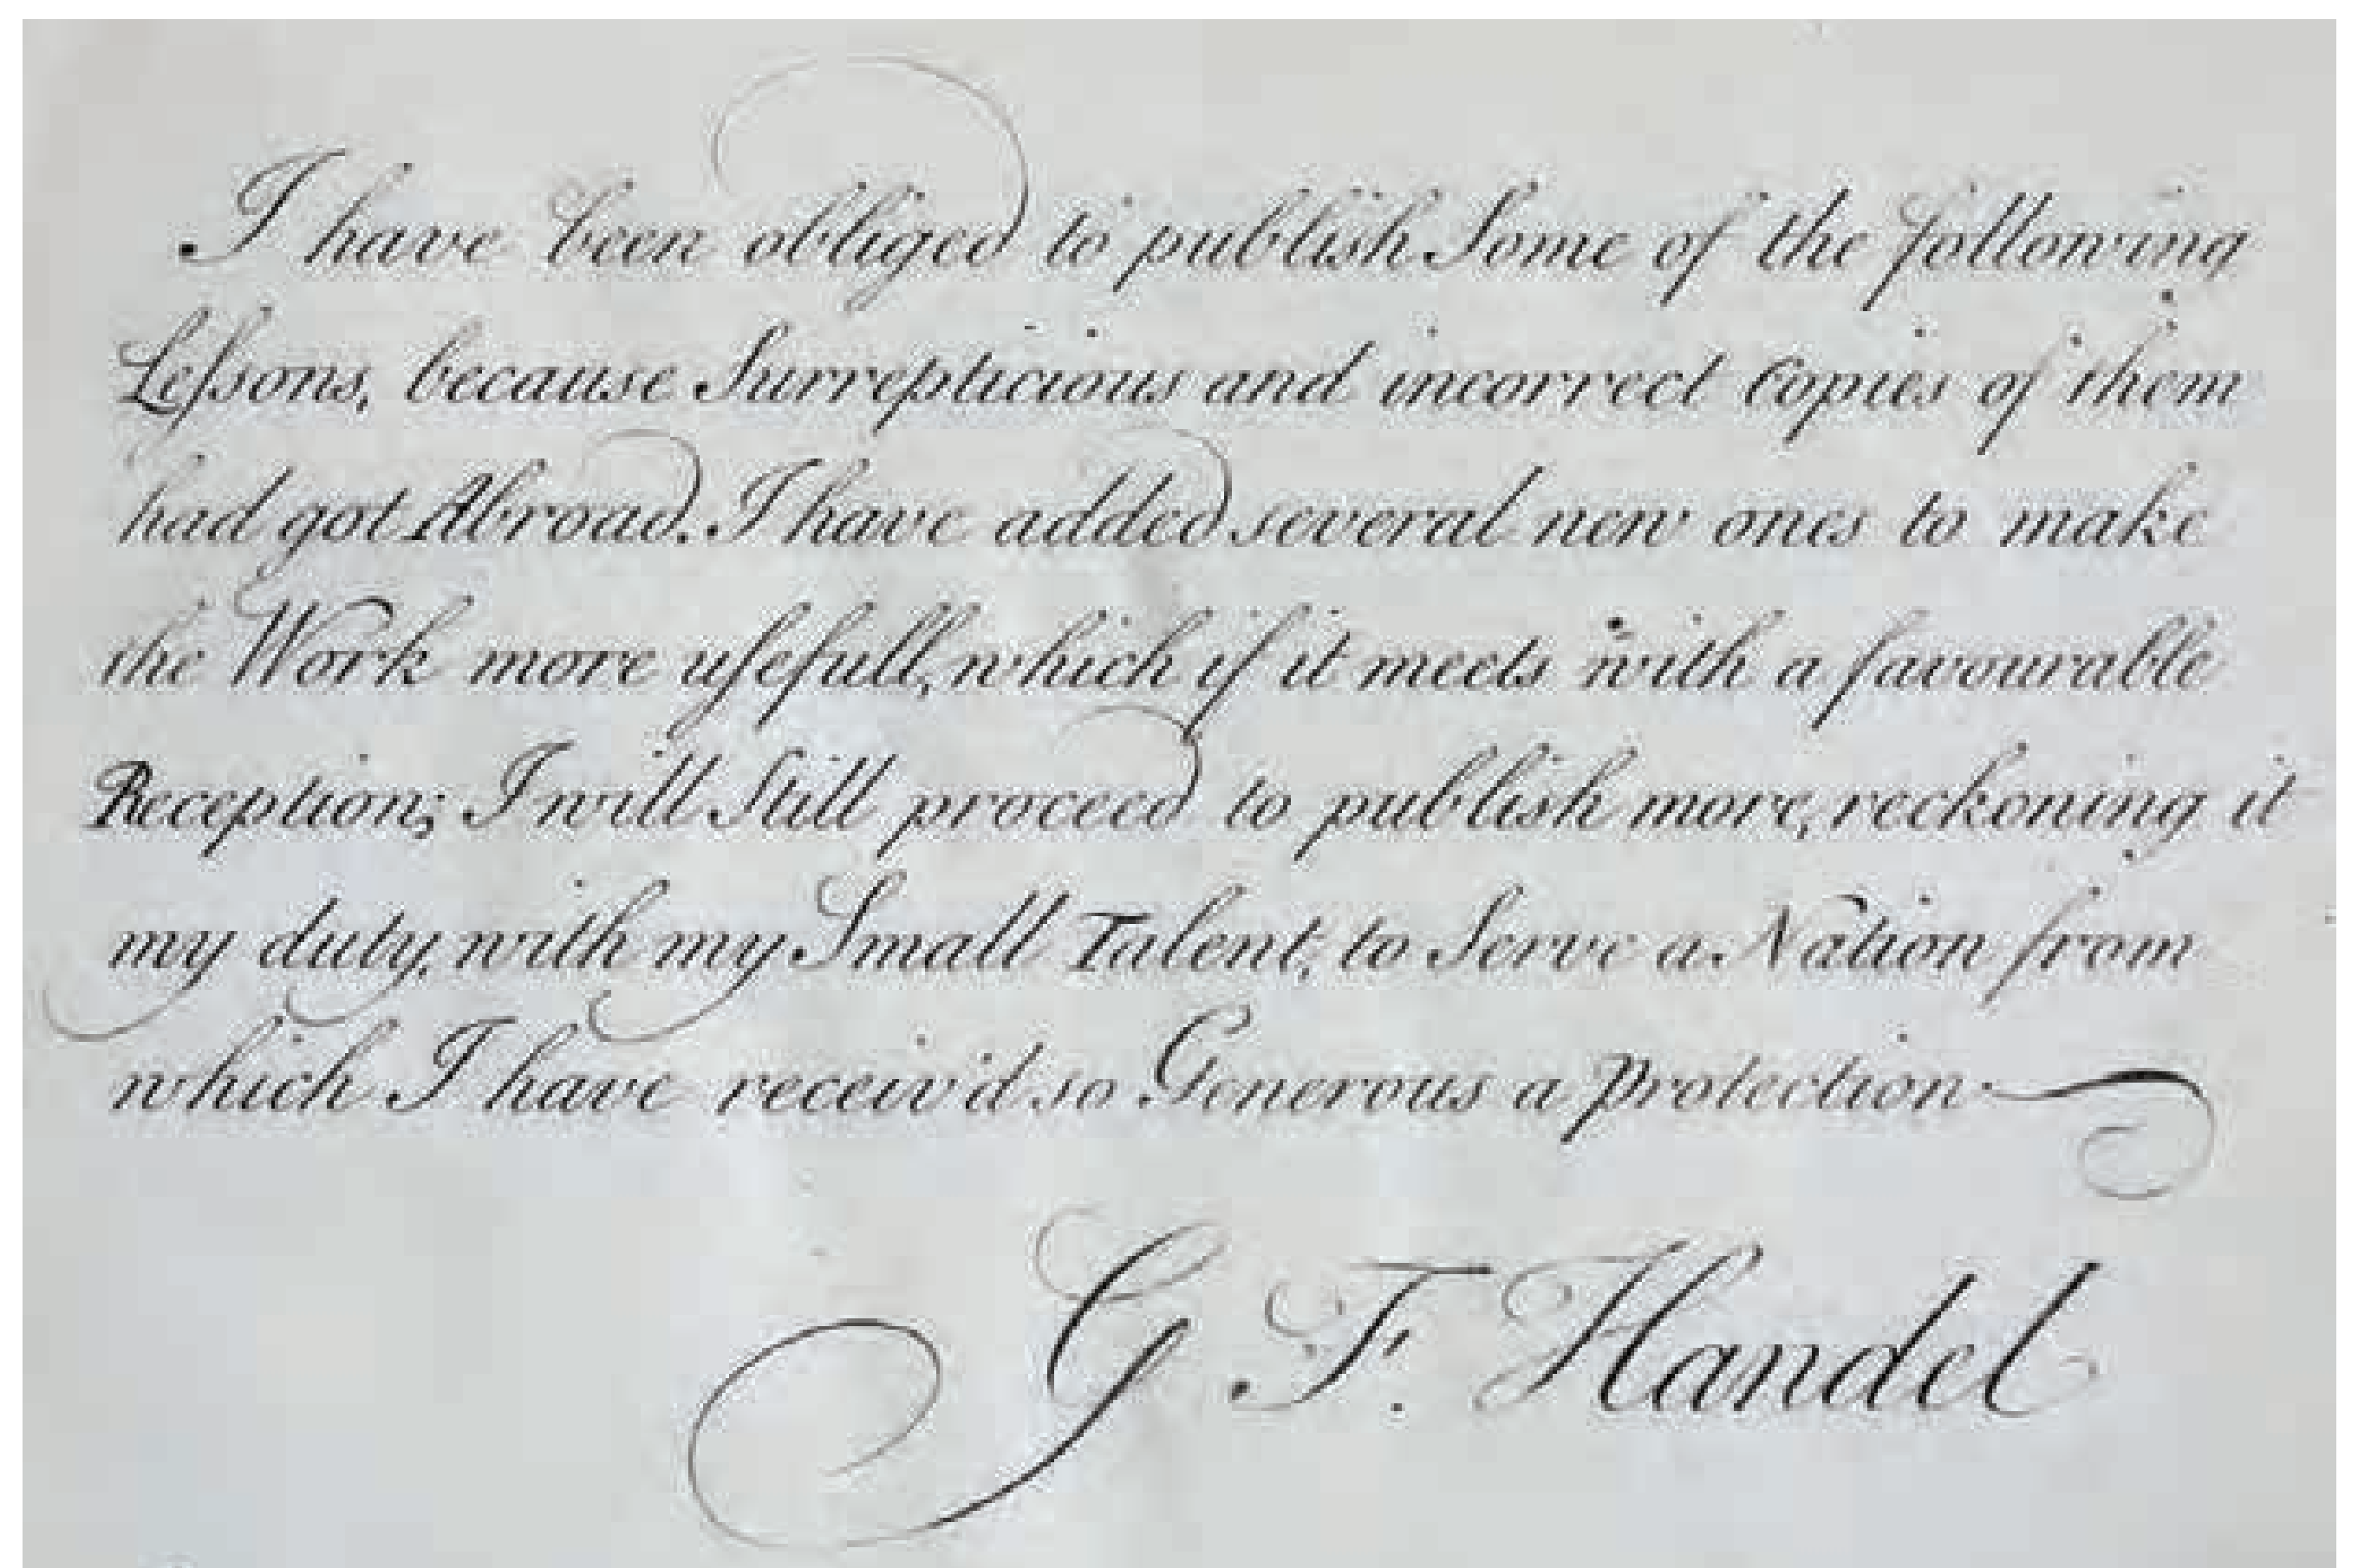 I have been obliged to publish Some of the following
Leſsons, because Surrepticious and incorrect Copies of them
had got Abroad. I have added several new ones to make
the Work more uſefull, which if it meets with a favourable
Reception; I will Still proceed to publish more, reckoning it
my duty, with my Small Talent, to Serve a Nation from
which I have receiv'd so Generous a Protection
G F. Handel